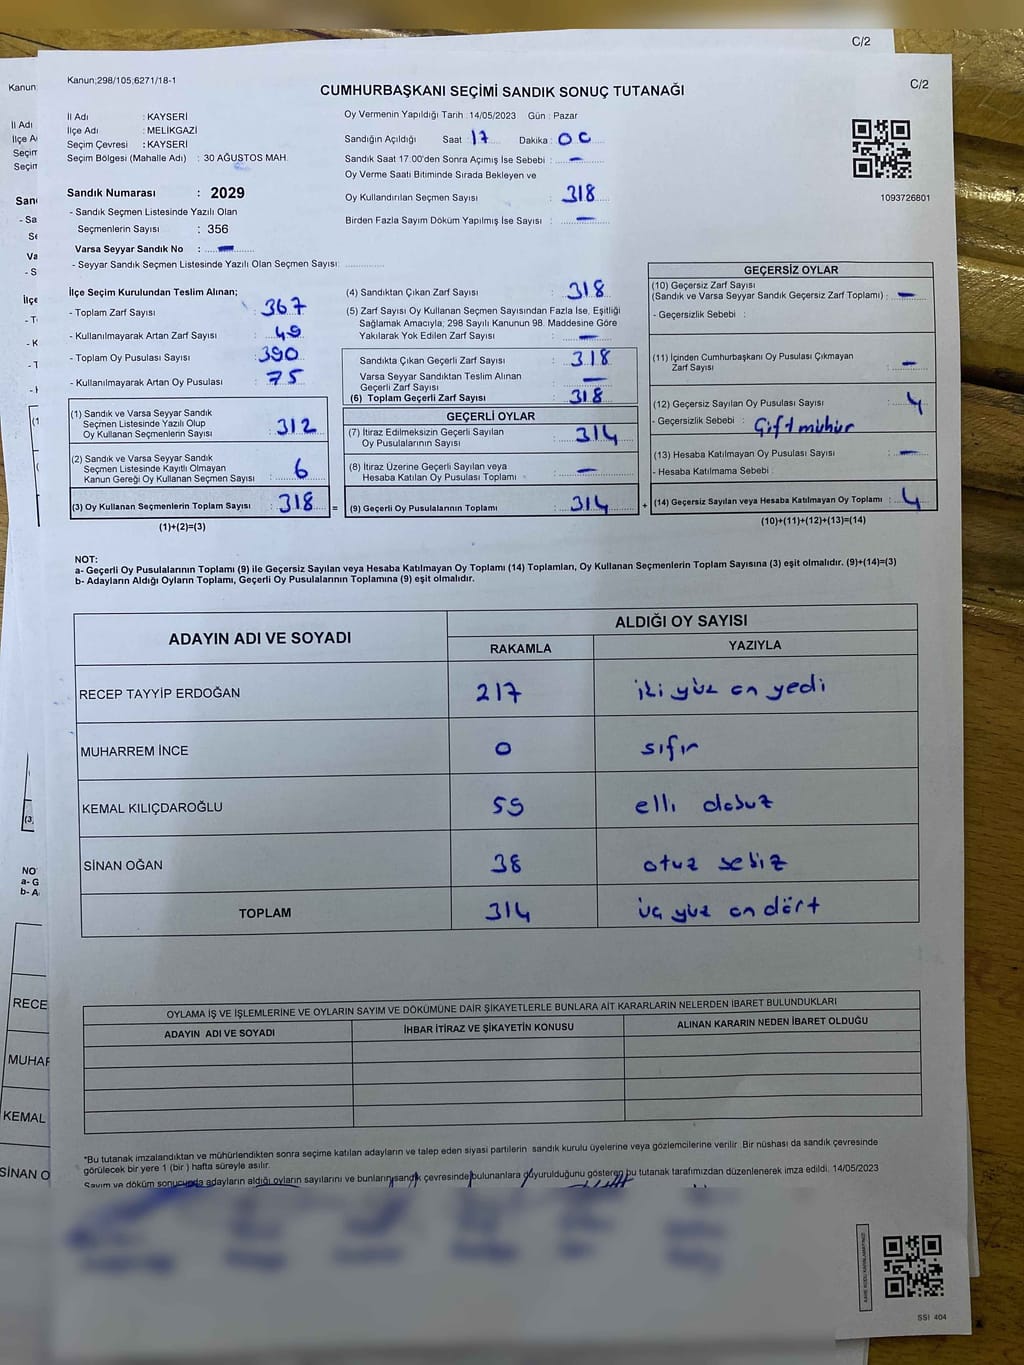 C/2
Kanun;298/105;6271/18-1
C/2
CUMHURBAŞKANI SEÇİMİ SANDIK SONUÇ TUTANAĞI
İl Adı : KAYSERİ
İlçe Adı : MELİKGAZİ
Seçim Çevresi : KAYSERİ
Seçim Bölgesi (Mahalle Adı) : 30 AĞUSTOS MAH.
Sandık Numarası : 2029
- Sandık Seçmen Listesinde Yazılı Olan
Seçmenlerin Sayısı : 356
Varsa Seyyar Sandık No : —
- Seyyar Sandık Seçmen Listesinde Yazılı Olan Seçmen Sayısı:
Oy Vermenin Yapıldığı Tarih : 14/05/2023 Gün : Pazar
Sandığın Açıldığı Saat : 17 Dakika : 00
Sandık Saat 17.00'den Sonra Açımış İse Sebebi : —
Oy Verme Saati Bitiminde Sırada Bekleyen ve
Oy Kullandırılan Seçmen Sayısı : 318
Birden Fazla Sayım Döküm Yapılmış İse Sayısı : —
1093726801
İlçe Seçim Kurulundan Teslim Alınan;
- Toplam Zarf Sayısı : 367
- Kullanılmayarak Artan Zarf Sayısı : 49
- Toplam Oy Pusulası Sayısı : 390
- Kullanılmayarak Artan Oy Pusulası : 75
(1) Sandık ve Varsa Seyyar Sandık
Seçmen Listesinde Yazılı Olup
Oy Kullanan Seçmenlerın Sayısı : 312
(2) Sandık ve Varsa Seyyar Sandık
Seçmen Listesinde Kayıtlı Olmayan
Kanun Gereği Oy Kullanan Seçmen Sayısı : 6
(3) Oy Kullanan Seçmenlerin Toplam Sayısı : 318
(1)+(2)=(3)
=
(4) Sandıktan Çıkan Zarf Sayısı : 318
(5) Zarf Sayısı Oy Kullanan Seçmen Sayısından Fazla İse, Eşitliği
Sağlamak Amacıyla; 298 Sayılı Kanunun 98. Maddesine Göre
Yakılarak Yok Edilen Zarf Sayısı : —
Sandıkta Çıkan Geçerli Zarf Sayısı : 318
Varsa Seyyar Sandıktan Teslim Alınan
Geçerli Zarf Sayısı : —
(6) Toplam Geçerli Zarf Sayısı : 318
GEÇERLİ OYLAR
(7) İtiraz Edilmeksizin Geçerli Sayılan
Oy Pusulalarının Sayısı : 314
(8) İtiraz Üzerine Geçerli Sayılan veya
Hesaba Katılan Oy Pusulası Toplamı : —
(9) Geçerli Oy Pusulalarının Toplamı : 314
+
GEÇERSİZ OYLAR
(10) Geçersiz Zarf Sayısı
(Sandık ve Varsa Seyyar Sandık Geçersiz Zarf Toplamı) : —
- Geçersizlik Sebebi :
(11) İçinden Cumhurbaşkanı Oy Pusulası Çıkmayan
Zarf Sayısı : —
(12) Geçersiz Sayılan Oy Pusulası Sayısı : 4
- Geçersizlik Sebebi : Çift mühür
(13) Hesaba Katılmayan Oy Pusulası Sayısı : —
- Hesaba Katılmama Sebebi :
(14) Geçersiz Sayılan veya Hesaba Katılmayan Oy Toplamı : 4
(10)+(11)+(12)+(13)=(14)
NOT:
a- Geçerli Oy Pusulalarının Toplamı (9) ile Geçersiz Sayılan veya Hesaba Katılmayan Oy Toplamı (14) Toplamları, Oy Kullanan Seçmenlerin Toplam Sayısına (3) eşit olmalıdır. (9)+(14)=(3)
b- Adayların Aldığı Oyların Toplamı, Geçerli Oy Pusulalarının Toplamına (9) eşit olmalıdır.
ADAYIN ADI VE SOYADI
ALDIĞI OY SAYISI
RAKAMLA YAZIYLA
RECEP TAYYİP ERDOĞAN 217 iki yüz on yedi
MUHARREM İNCE 0 sıfır
KEMAL KILIÇDAROĞLU 59 elli dokuz
SİNAN OĞAN 38 otuz sekiz
TOPLAM 314 üç yüz on dört
OYLAMA İŞ VE İŞLEMLERİNE VE OYLARIN SAYIM VE DÖKÜMÜNE DAİR ŞİKAYETLERLE BUNLARA AİT KARARLARIN NELERDEN İBARET BULUNDUKLARI
ADAYIN ADI VE SOYADI İHBAR İTİRAZ VE ŞİKAYETİN KONUSU ALINAN KARARIN NEDEN İBARET OLDUĞU
*Bu tutanak imzalandıktan ve mühürlendikten sonra seçime katılan adayların ve talep eden siyasi partilerin sandık kurulu üyelerine veya gözlemcilerine verilir. Bir nüshası da sandık çevresinde
görülecek bir yere 1 (bir) hafta süreyle asılır.
Sayım ve döküm sonucunda adayların aldığı oyların sayılarını ve bunların sandık çevresinde bulunanlara duyurulduğunu gösteren bu tutanak tarafımızdan düzenlenerek imza edildi. 14/05/2023
SSI 404